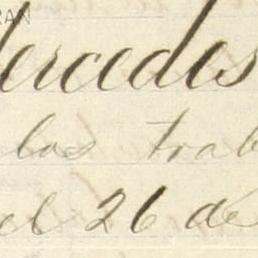 RAN
Mercedes
los trab
el 26 de